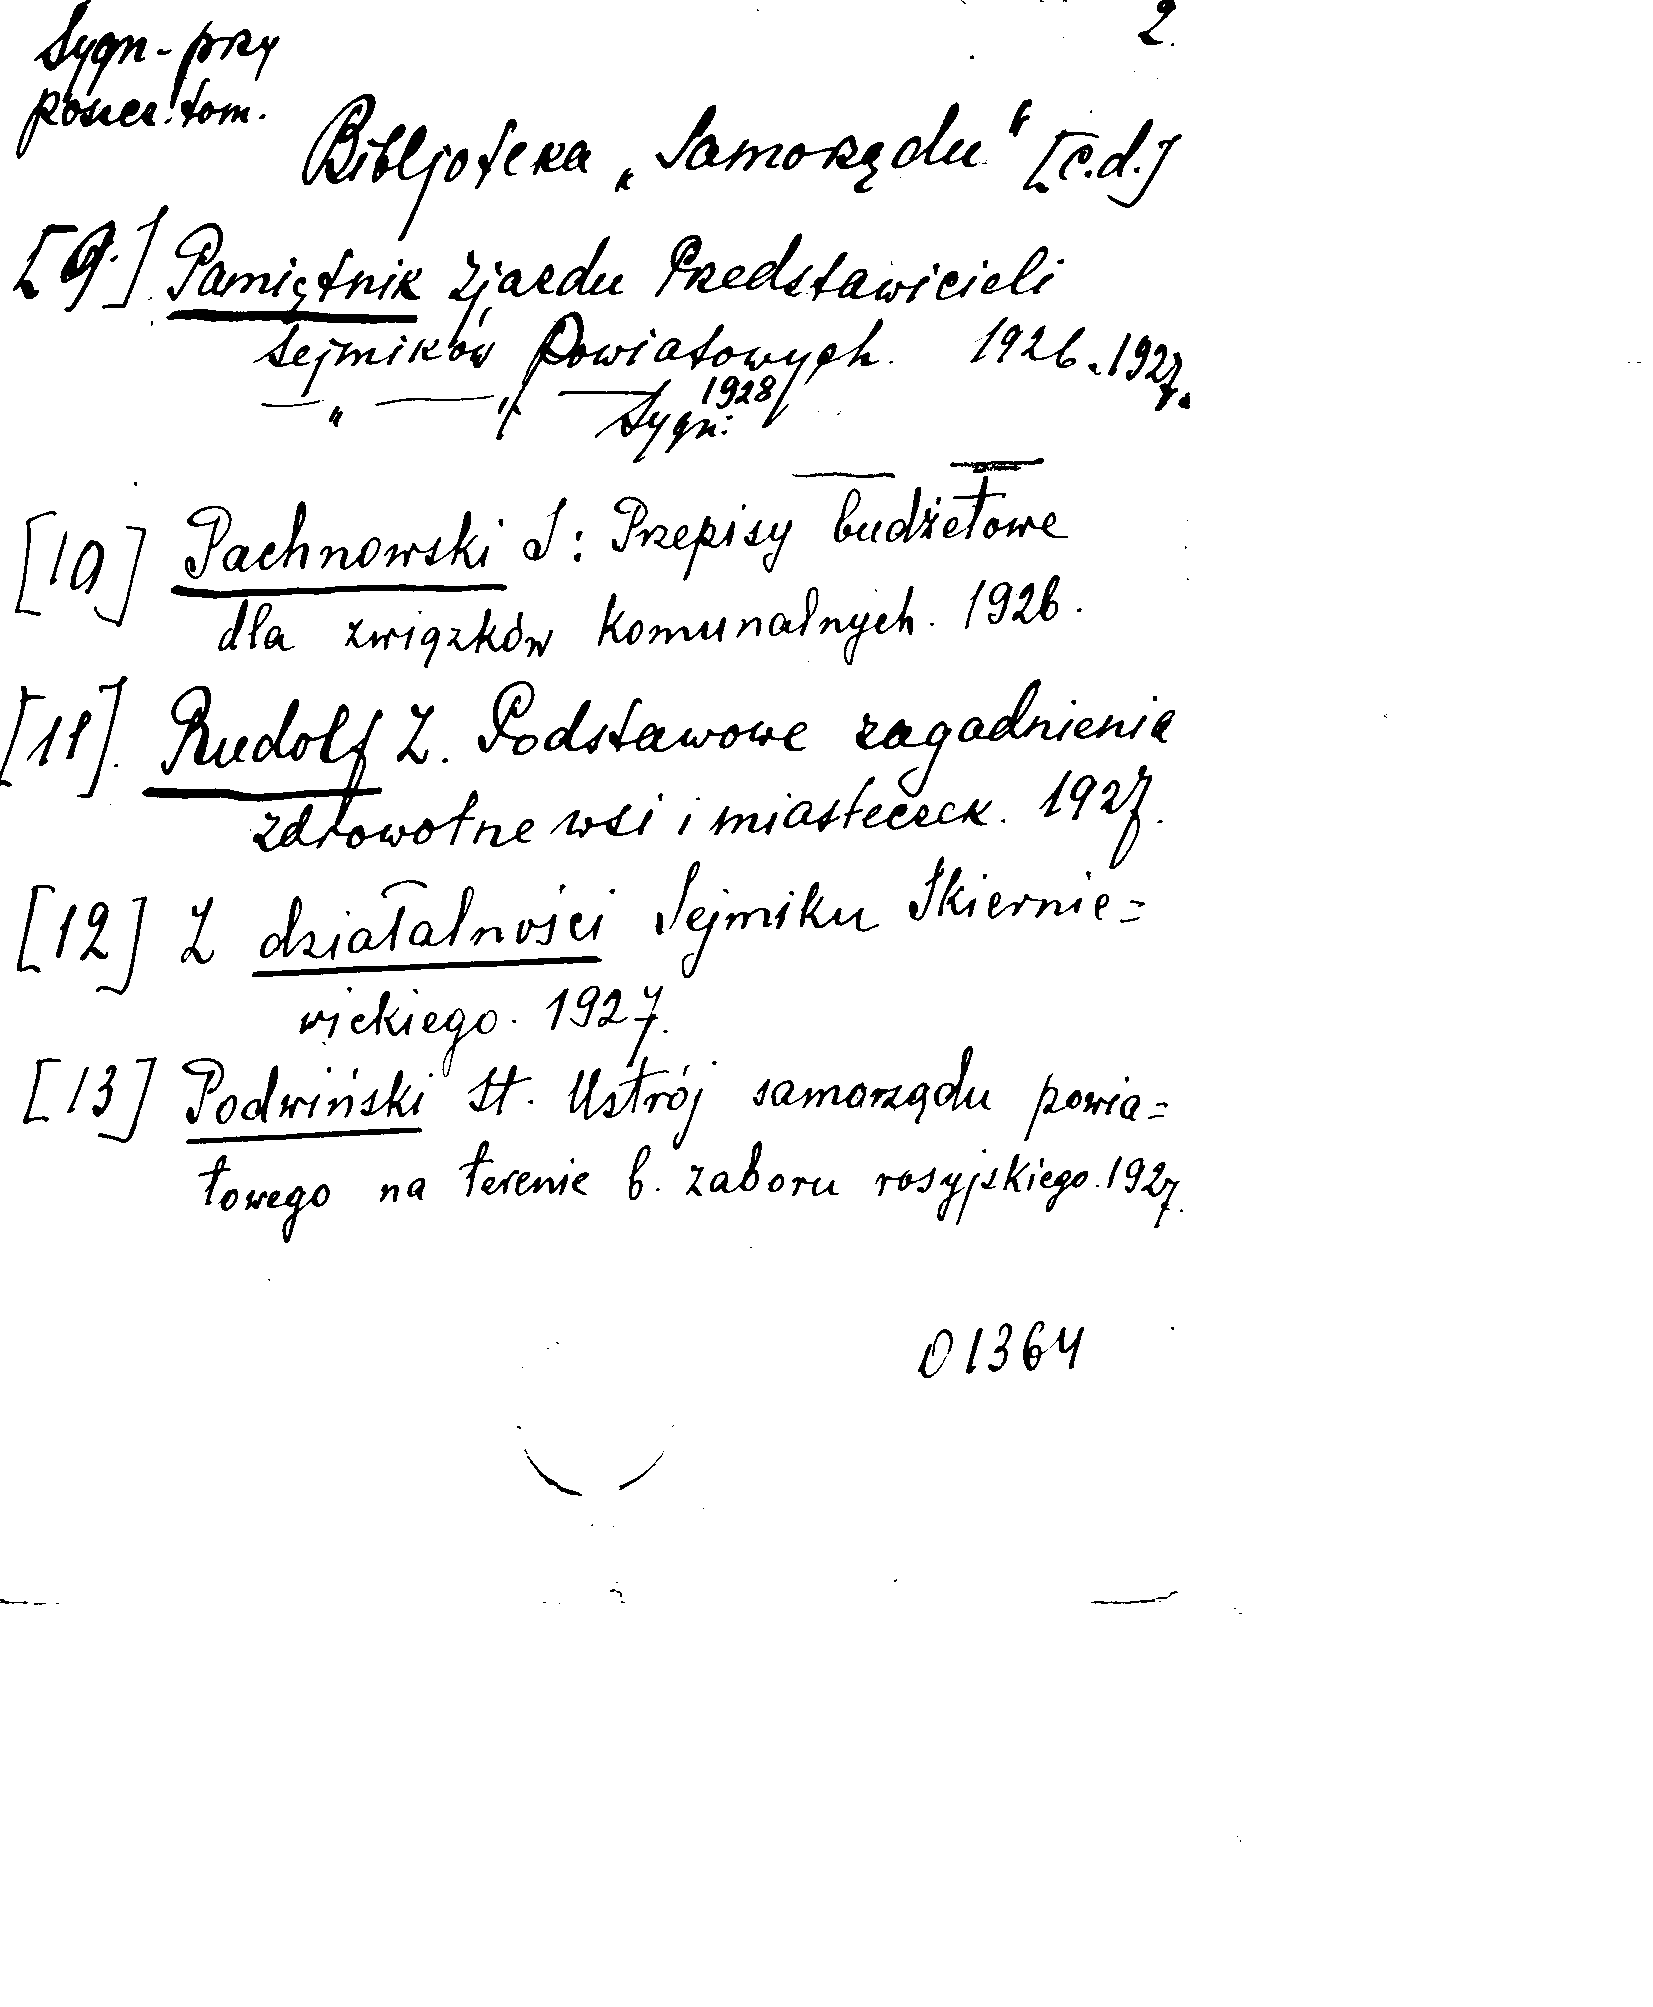 2.
Sygn. przy
poszcz. tom.
Bibljoteka „Samorządu" [c.d.]
[9.] Pamiętnik Zjazdu Przedstawicieli
Sejmików Powiatowych. 1926. 1927.
— " — " — 1928
Sygn:
[10] Pachnowski S: Przepisy budżetowe
dla związków komunalnych. 1926.
[11]. Rudolf Z. Podstawowe zagadnienia
zdrowotne wsi i miasteczek. 1927.
[12] Z działalności Sejmiku Skiernie=
wickiego. 1927.
[13] Podwiński St. Ustrój samorządu powia=
towego na terenie b. zaboru rosyjskiego. 1927.
01364